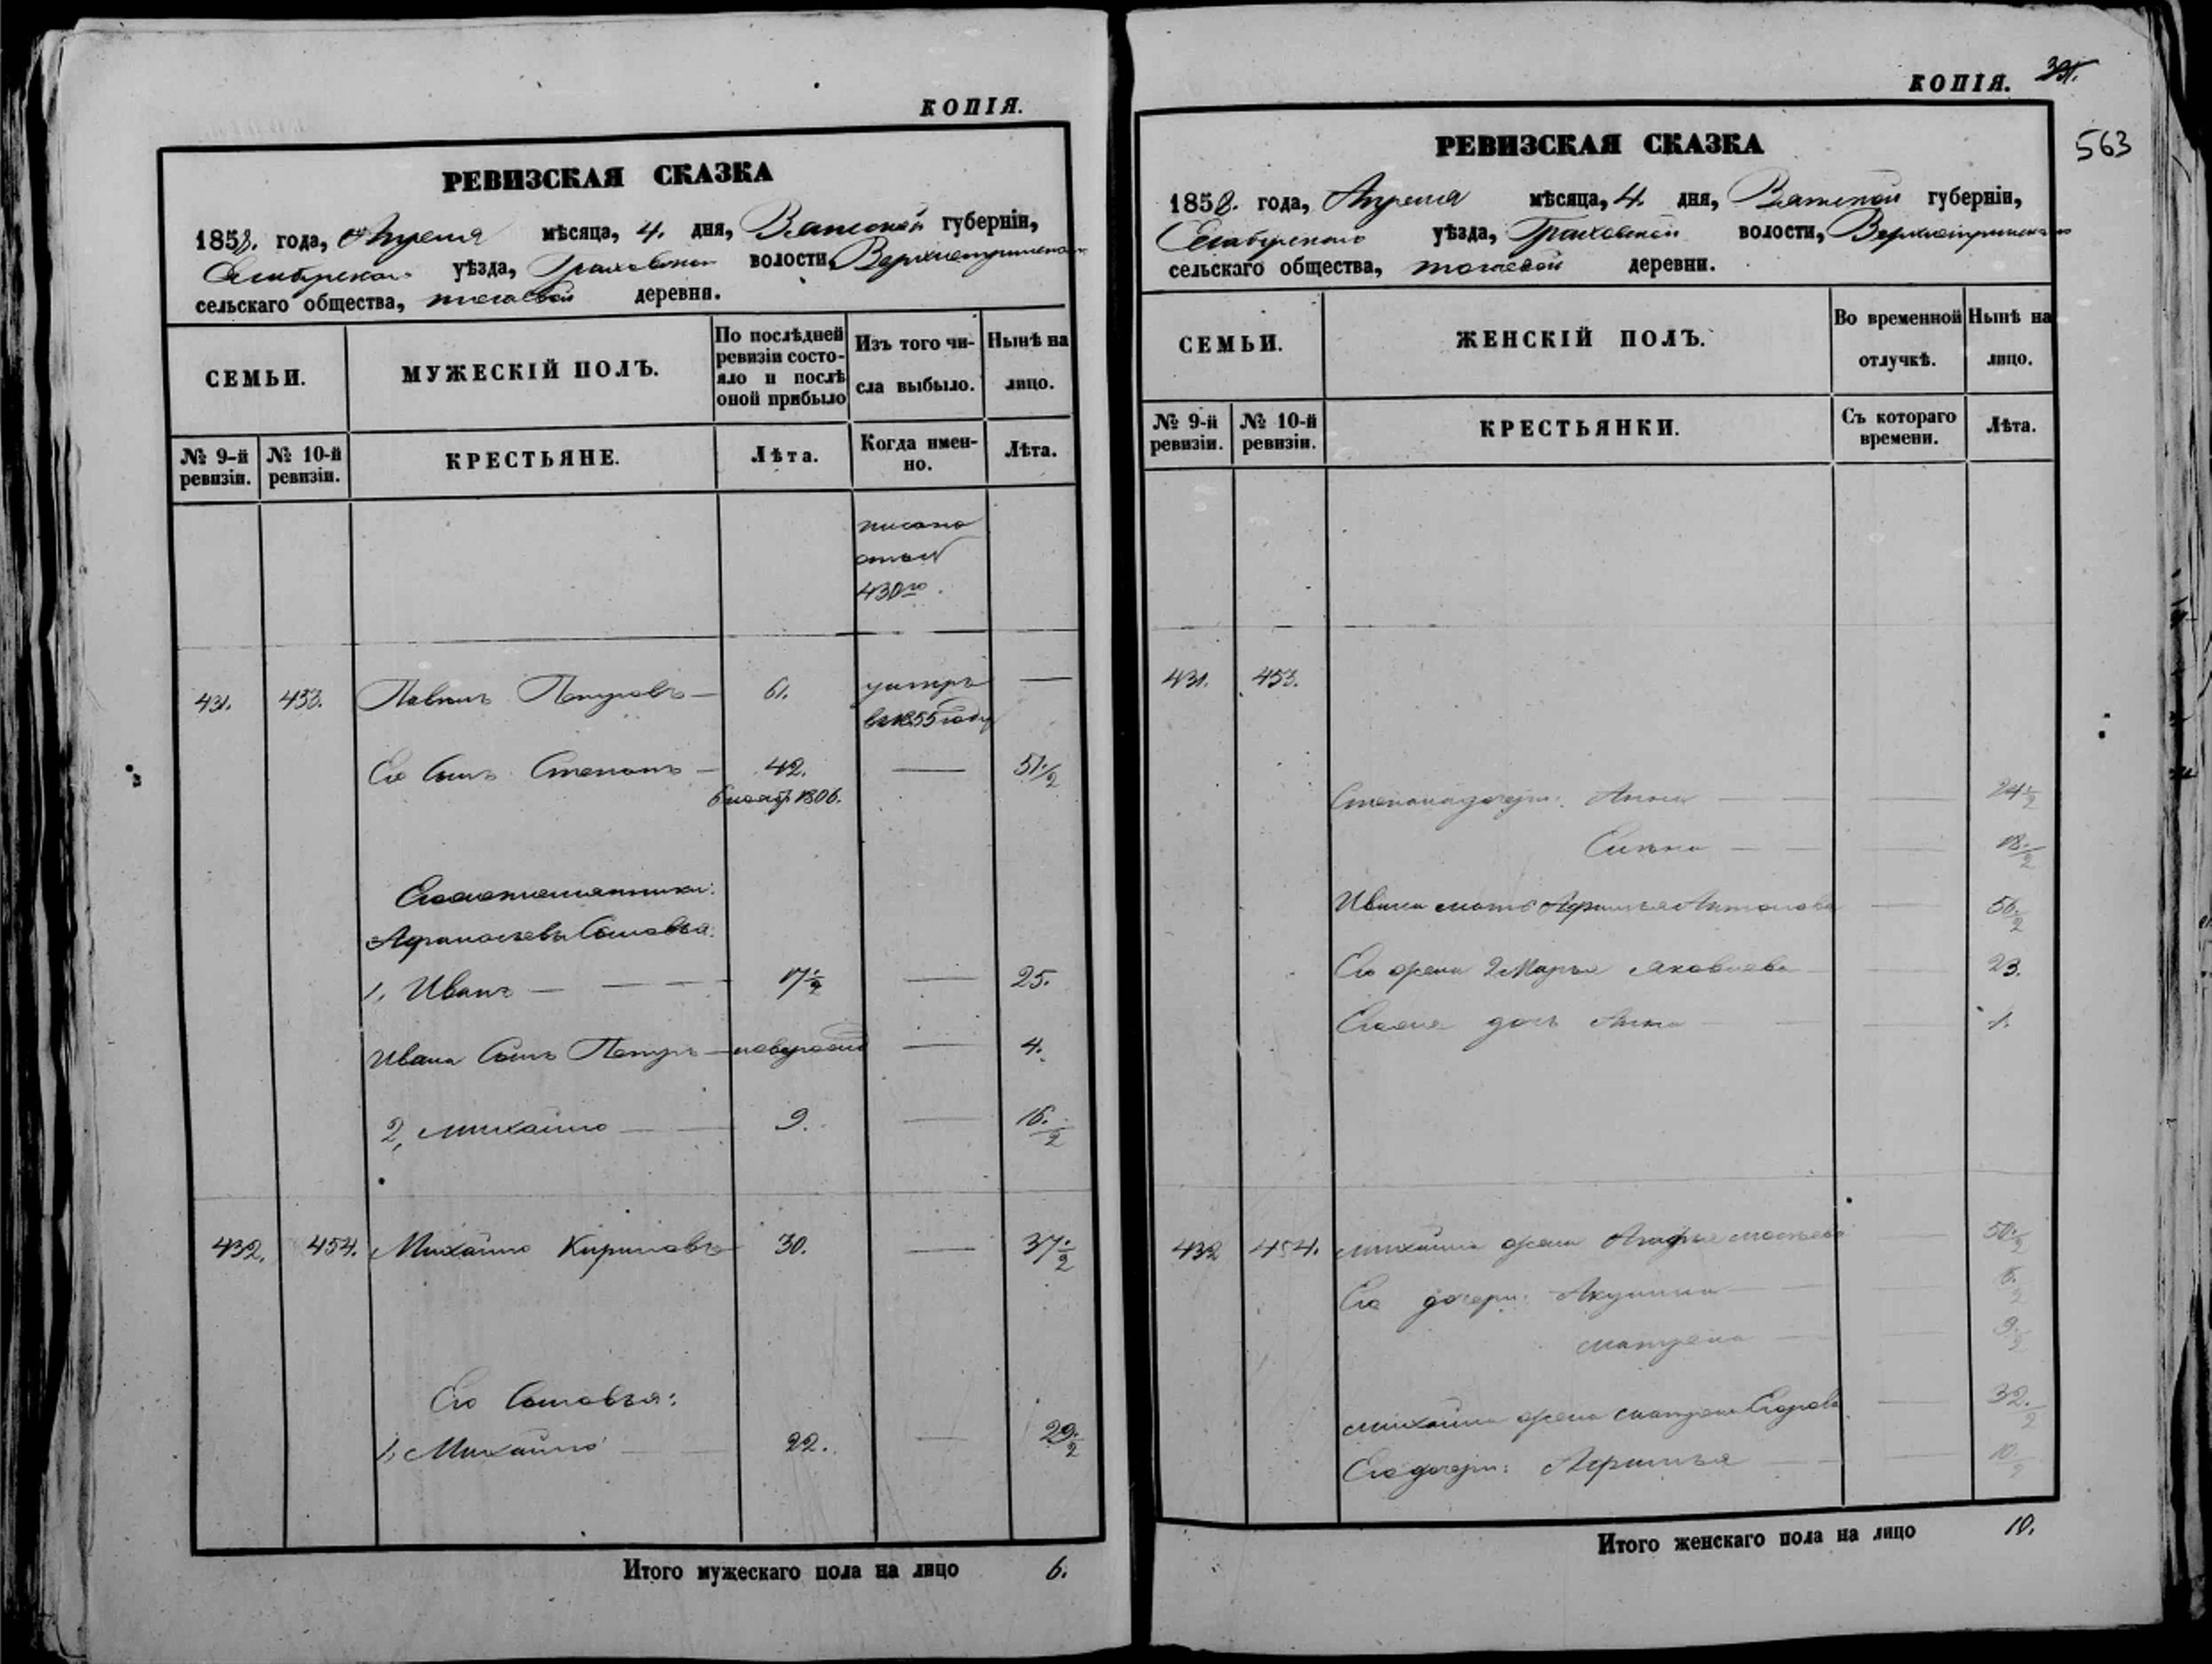 КОПІЯ.
РЕВИЗСКАЯ СКАЗКА
1858. года, Апреля мѣсяца, 4. дня, Вятской губерніи,
Елабужскаго уѣзда, Граховской волости,
сельскаго общества, деревни.
СЕМЬИ.
МУЖЕСКІЙ ПОЛЪ.
По послѣдней ревизіи состояло и послѣ оной прибыло
Изъ того числа выбыло.
Нынѣ на лицо.
№ 9-й ревизіи.
№ 10-й ревизіи.
КРЕСТЬЯНЕ.
Лѣта.
Когда именно.
Лѣта.
писано
430го.
431. 453. Павелъ Петровъ — 61. умеръ —
въ 1855 году
Его Сынъ Степанъ — 42. — 51 1/2
1806.
Его племянники:
Афанасьевы Сыновья:
1, Иванъ — 17 1/2 — 25.
Ивана Сынъ Петръ — новорожд — 4.
2, Михайло — 9. — 16. 1/2
432. 454. Михайло Кириловъ 30. — 37. 1/2
Его Сыновья:
1, Михайло — 22. — 29. 1/2
Итого мужескаго пола на лицо 6.
КОПІЯ.
563
РЕВИЗСКАЯ СКАЗКА
1858. года, Апреля мѣсяца, 4. дня, Вятской губерніи,
Елабужскаго уѣзда, Граховской волости,
сельскаго общества, деревни.
СЕМЬИ.
ЖЕНСКІЙ ПОЛЪ.
Во временной отлучкѣ.
Нынѣ на лицо.
№ 9-й ревизіи.
№ 10-й ревизіи.
КРЕСТЬЯНКИ.
Съ котораго времени.
Лѣта.
431. 453.
Степана дочери: Анна — — 24 1/2
Елена — — 18. 1/2
Ивана мать Афимья Антонова — 50. 1/2
Его жена 2 Марья Яковлева — 23.
дочь Анна — — 1.
432 454. Михайла жена Агафья — 50. 1/2
Его дочери: Акулина —
Матрена — — 9. 1/2
Михайла жена Матрена Егорова — 32. 1/2
Его дочери: Афимья — — 10. 1/2
Итого женскаго пола на лицо 10.